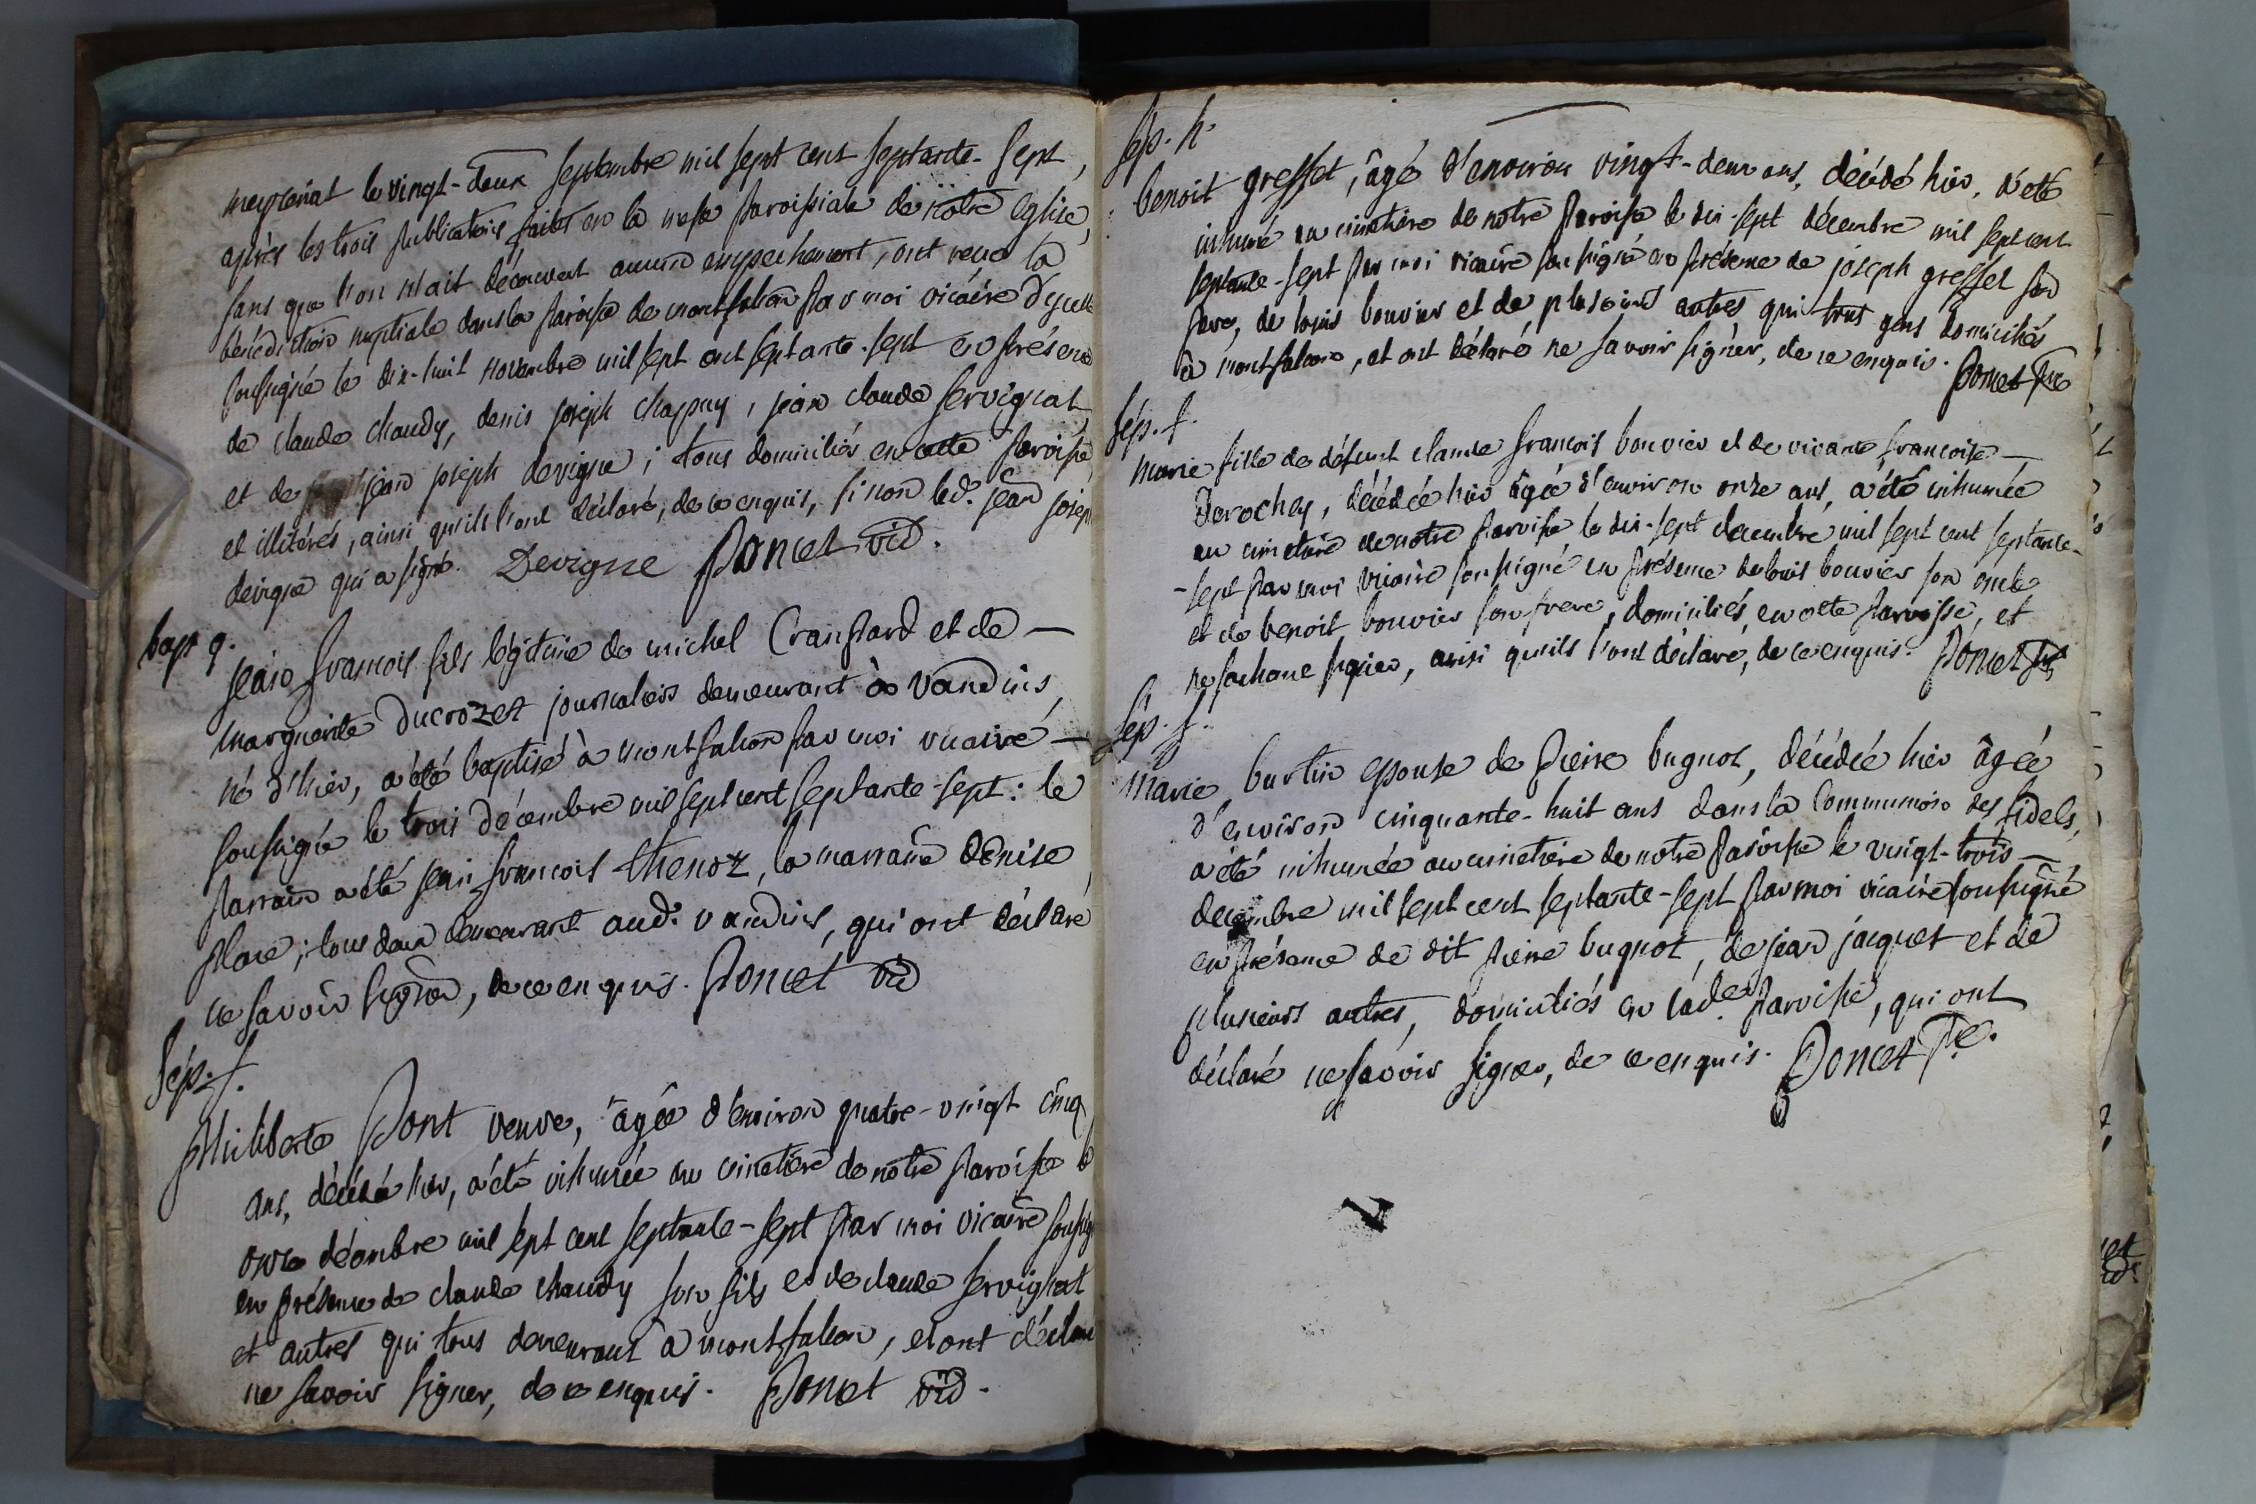 meyseriat le vingt-deux septembre mil sept cent septante-sept,
après les trois publications faites en la messe paroissiale de notre église,
sans que l'on n'ait découvert aucun empechement, ont reçu la
bénédiction nuptiale dans la paroisse de montfalcon par moi vicaire d'icelle
soussigné le dix-huit novembre mil sept cent septante-sept en présence
de claude chaudy, denis joseph chapuy, jean claude servignat
et de jean joseph devigne; tous domiciliés en cette paroisse
et illitérés, ainsi qu'ils l'ont déclaré, de ce enquis, sinon led. jean joseph
devigne qui a signé. Devigne Poncet vic.
bap g.
jean francois fils légitime de michel Cranpard et de —
marguerite Ducrozet journaliers demeurant à vandins,
né d'hier, a été baptisé à montfalcon par moi vicaire —
soussigné le trois décembre mil sept cent septante-sept: le
parrain a été jean francois thenoz, la marraine denise
place; tous deux demeurant aud. vandins, qui ont déclaré
ne savoir signer, de ce enquis. Poncet vic
Sép. f.
philiberte Pont veuve, agée d'environ quatre-vingt cinq
ans, décédé hier, a été inhumée au cimetière de notre paroisse le
onze décembre mil sept cent septante-sept par moi vicaire soussig
en présence de claude chaudy son fils et de claude servignat
et autres qui tous demeurant à montfalcon, et ont déclaré
ne savoir signer, de ce enquis. Poncet vic.
Sép. h.
benoit gresset, âgé d'environ vingt-deux ans, décédé hier, a été
inhumé au cimetière de notre paroisse le dix-sept décembre mil sept cent
septante-sept par moi vicaire soussigné en présence de joseph gresset son
pere, de louis bouvier et de plusieurs autres qui tous gens domiciliés
à montfalcon, et ont déclaré ne savoir signer, de ce enquis. Poncet ptre
Sép. f.
marie fille de défunt claude francois bouvier et de vivante francoise —
Derochey, décédée hier âgée d'environ onze ans, a été inhumée
au cimetière de notre paroisse le dix-sept decembre mil sept cent septante-
-sept par moi vicaire soussigné en présence de louis bouvier son oncle
et de benoit bouvier son frere, domiciliés en cette parroisse, et
ne sachant signer, ainsi qu'ils l'ont déclaré, de ce enquis. Poncet ptre
Sép. f.
Marie burtin epouse de pierre bugnot, décédée hier âgée
d'environ cinquante-huit ans dans la Communion des fidels,
a été inhumée au cimetière de notre paroisse le vingt-trois —
decembre mil sept cent septante-sept par moi vicaire soussigné
en présence de dit pierre bugnot, de jean jacquet et de
plusieurs autres, domiciliés en lad. paroisse, qui ont
déclaré ne savoir signer, de ce enquis. Poncet ptre.